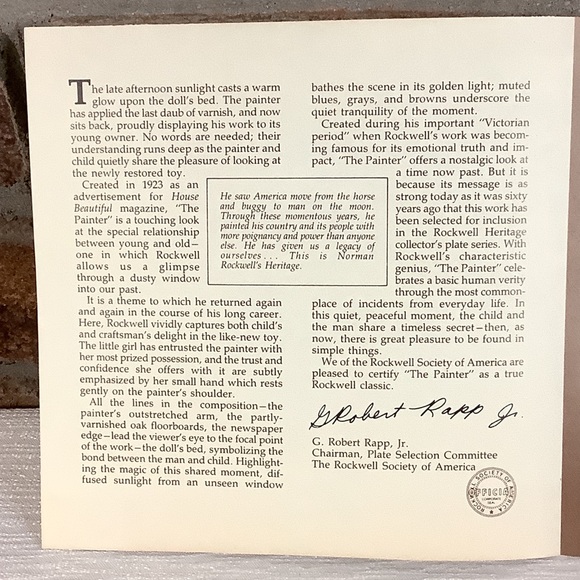 The late afternoon sunlight casts a warm
glow upon the doll's bed. The painter
has applied the last daub of varnish, and now
sits back, proudly displaying his work to its
young owner. No words are needed; their
understanding runs deep as the painter and
child quietly share the pleasure of looking at
the newly restored toy.
Created in 1923 as an
advertisement for House
Beautiful magazine, "The
Painter" is a touching look
at the special relationship
between young and old—
one in which Rockwell
allows us a glimpse
through a dusty window
into our past.
It is a theme to which he returned again
and again in the course of his long career.
Here, Rockwell vividly captures both child's
and craftsman's delight in the like-new toy.
The little girl has entrusted the painter with
her most prized possession, and the trust and
confidence she offers with it are subtly
emphasized by her small hand which rests
gently on the painter's shoulder.
All the lines in the composition—the
painter's outstretched arm, the partly-
varnished oak floorboards, the newspaper
edge—lead the viewer's eye to the focal point
of the work—the doll's bed, symbolizing the
bond between the man and child. Highlight-
ing the magic of this shared moment, dif-
fused sunlight from an unseen window
He saw America move from the horse
and buggy to man on the moon.
Through these momentous years, he
painted his country and its people with
more poignancy and power than anyone
else. He has given us a legacy of
ourselves . . . This is Norman
Rockwell's Heritage.
bathes the scene in its golden light; muted
blues, grays, and browns underscore the
quiet tranquility of the moment.
Created during his important "Victorian
period" when Rockwell's work was becom-
ing famous for its emotional truth and im-
pact, "The Painter" offers a nostalgic look at
a time now past. But it is
because its message is as
strong today as it was sixty
years ago that this work has
been selected for inclusion
in the Rockwell Heritage
collector's plate series. With
Rockwell's characteristic
genius, "The Painter" cele-
brates a basic human verity
through the most common-
place of incidents from everyday life. In
this quiet, peaceful moment, the child and
the man share a timeless secret—then, as
now, there is great pleasure to be found in
simple things.
We of the Rockwell Society of America are
pleased to certify "The Painter" as a true
Rockwell classic.
G Robert Rapp Jr.
G. Robert Rapp, Jr.
Chairman, Plate Selection Committee
The Rockwell Society of America
ROCKWELL SOCIETY OF AMERICA
OFFICIAL
CORPORATE
SEAL